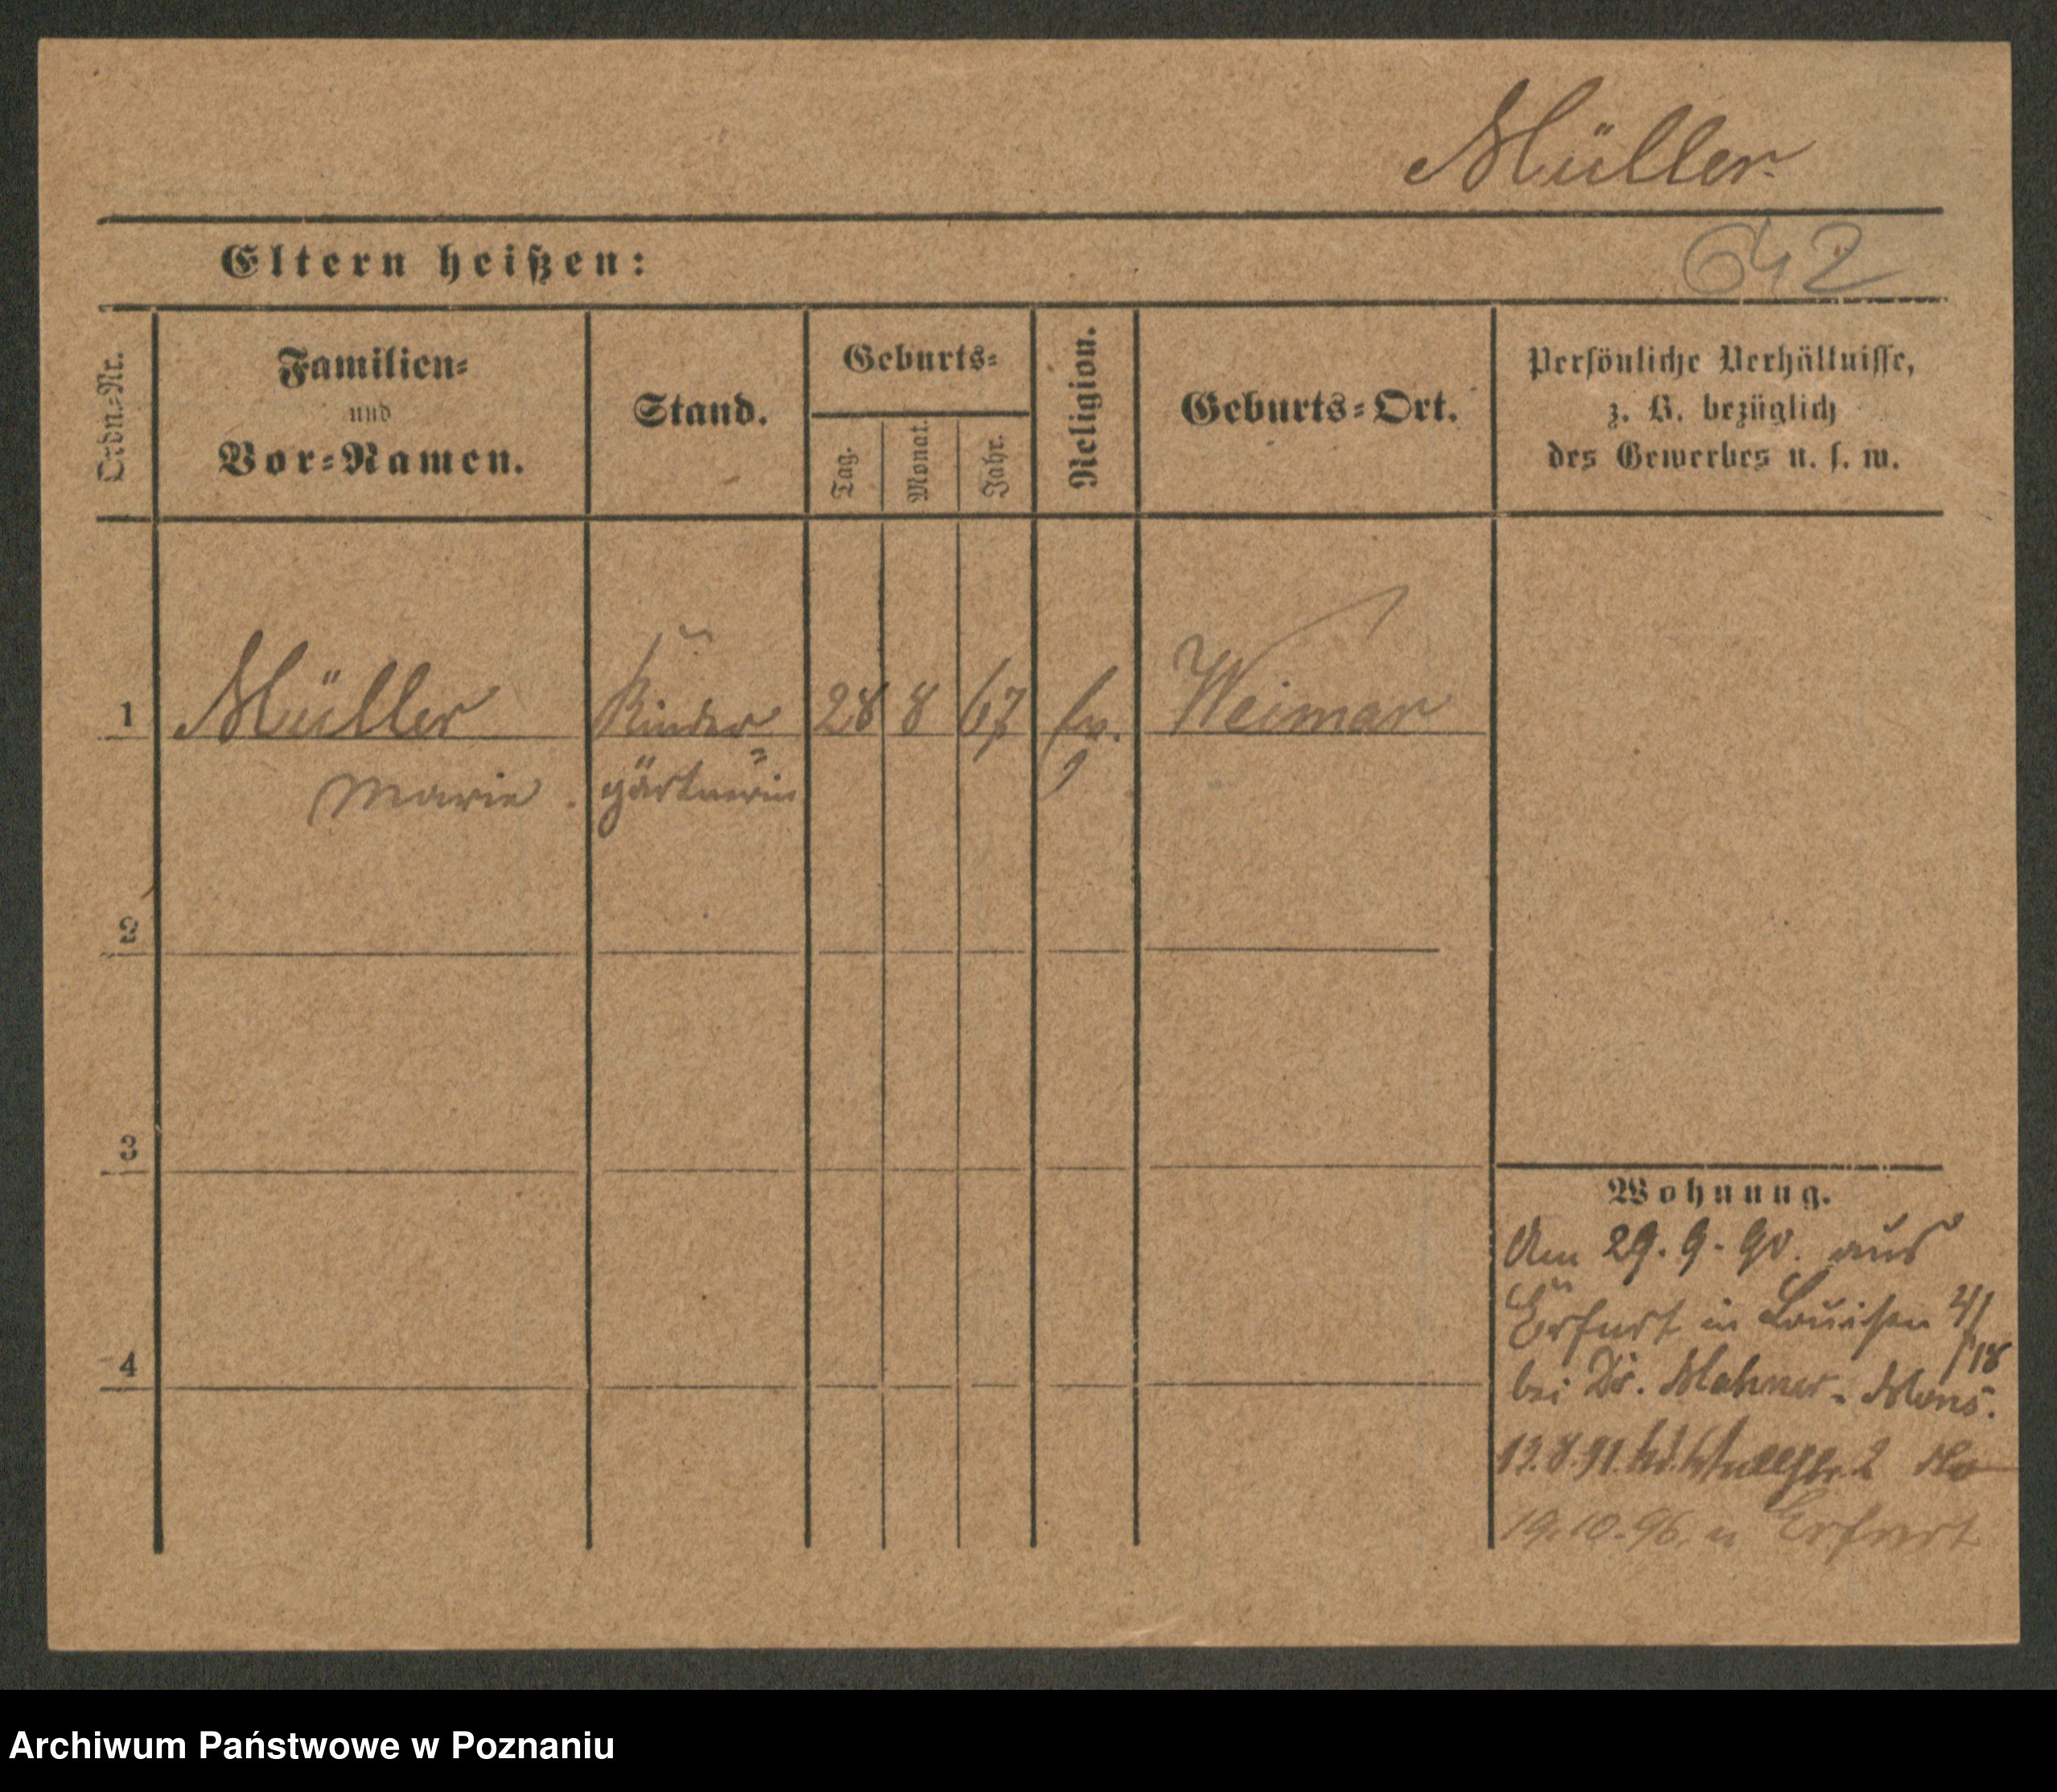 Müller.
Eltern heißen:
642
Ordn.-Nr.
Familien-
und
Vor-Namen.
Stand.
Geburts-
Tag.
Monat.
Jahr.
Religion.
Geburts-Ort.
Persönliche Verhältnisse,
z. B. bezüglich
des Gewerbes u. s. w.
1 Müller Kinder 28 8 67 ev. Weimar
Marie. gärtnerin
2
3
4
Wohnung.
Am 29.9.90. aus
Erfurt in Louisen
18
bei Dr.
2
19.10.96. n Erfurt
Archiwum Państwowe w Poznaniu